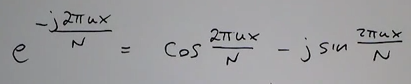 e^{-j2πux/N} = cos 2πux/N - j sin 2πux/N